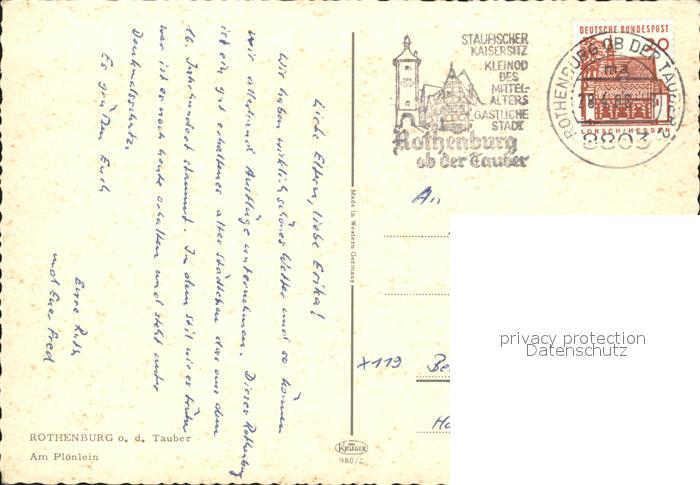 Liebe Eltern, liebe Erika!
Wir haben wirklich schönes Wetter und so können
wir allerhand Ausflüge unternehmen. Dieses Rothenburg
ist ein gut erhaltenes altes Städtchen das aus dem
16. Jahrhundert stammt. In dem Stil wie es früher
war ist es noch heute erhalten und steht unter
Denkmalsschutz.
Es grüßen Euch
Eure Ruth
und Euer Fred
ROTHENBURG o. d. Tauber
Am Plönlein
Made in Western Germany
KRÜGER
980/2
STAUFISCHER
KAISERSITZ
KLEINOD
DES
MITTEL-
ALTERS
GASTLICHE
STADT
Rothenburg
ob der Tauber
DEUTSCHE BUNDESPOST
20
LORSCH/HESSEN
ROTHENBURG OB DER TAUBER
ma
8803
An
x119
privacy protection
Datenschutz